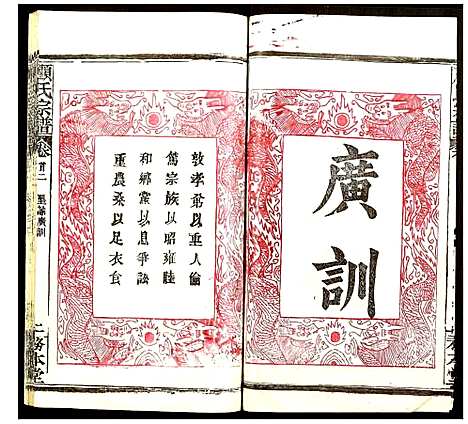 廣訓
敦孝弟以重人倫
篤宗族以昭雍睦
和鄉黨以息爭訟
重農桑以足衣食
顧氏宗譜
卷首二
聖諭廣訓
務本堂